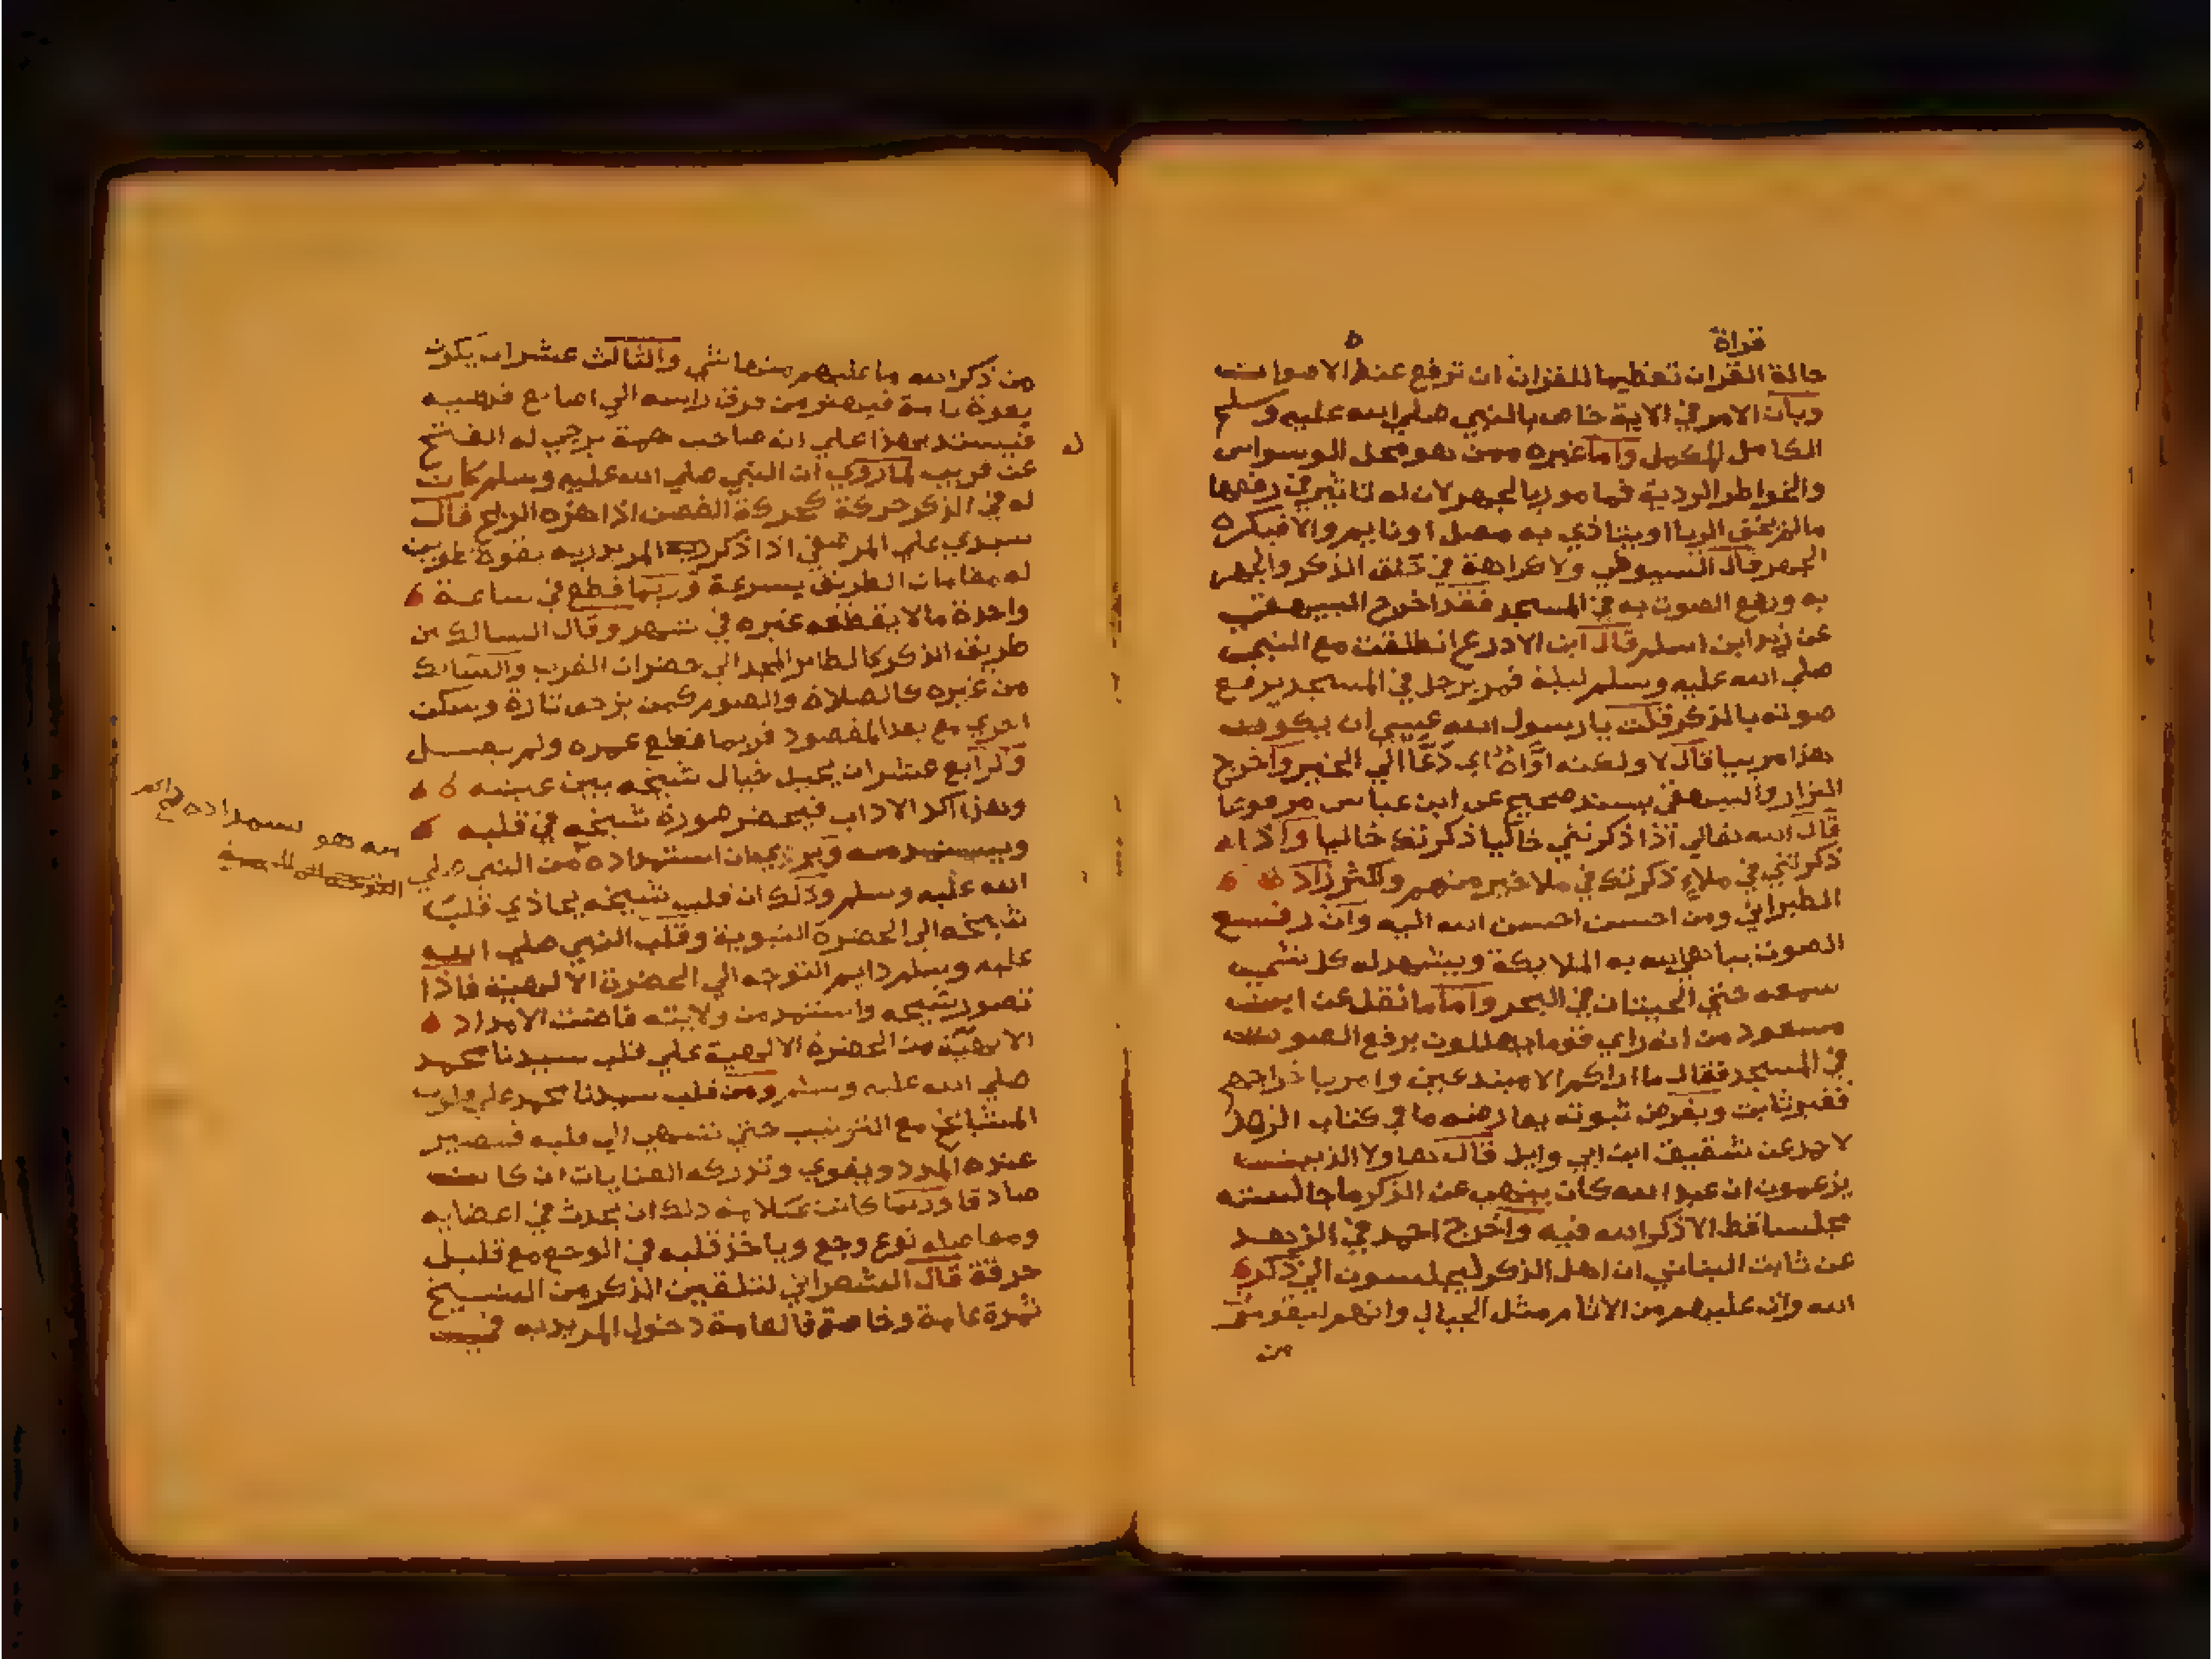 قراة
حالة القران تعظيما للقران ان ترفع عنده الاصوات
وبان الامر في الاية خاص بالنبي صلي الله عليه وسلم
الكامل المكمل واما غيره ممن هو محل الوسواس
والخواطر الردية فمامور بالجهر لان له تاثير في رفعها
مالم يخف الريا او يتاذي به مصل او نايم والا فيكره
الجهر قال السيوطي ولا كراهة في حلق الذكر والجهر
به ورفع الصوت به في المسجد فقد اخرج البيهقي
عن زيد ابن اسلم قال ابن الادرع انطلقت مع النبي
صلي الله عليه وسلم ليلة فمر برجل في المسجد يرفع
صوته بالذكر قلت يارسول الله عيسي ان يكون
هذا مرييا قال لا ولكنه اواه اي دعا الي الخير واخرج
البزار والبيهقي بسند صحيح عن ابن عباس مرفوعا
قال الله تعالي اذا ذكرتني خاليا ذكرتك خاليا واذا
ذكرتني في ملاء ذكرتك في ملا خير منهم واكثر زاد
الطبراني ومن احسن احسن الله اليه وان رفع
الصوت يباهي الله به الملايكة ويشهد له كل شي
سمعه حتي الحيتان في البحر واما ما نقل عن ابن
مسعود من انه راي قوما يهللون برفع الصوت
في المسجد فقال ما اراكم الا مبتدعين وامر باخراجهم
فغير ثابت وبفرض ثبوته يعارضه ما في كتاب الزهد
لاحمد عن شقيق ابن ابي وايل قال هاولا الذين
يزعمون ان عبد الله كان ينهي عن الذكر ما جالسته
مجلسا قط الا ذكر الله فيه واخرج احمد في الزهد
عن ثابت البناني ان اهل الذكر ليجلسون الي ذكر
الله وان عليهم من الاثام مثل الجبال وانهم ليقومون
من
من ذكر الله ما عليهم منها شي والثالث عشر ان يكون
بقوة تامة فيهتز من فوق راسه الي اصابع قدميه
فيستدل بهذا علي انه صاحب همة يرجي له الفتح
عن قريب لما روي ان النبي صلي الله عليه وسلم كانت
له في الذكر حركة كحركة الغصن اذا هزه الريح قال
سيدي علي المرصفي اذا ذكر المريد ربه بقوة طويت
له مقامات الطريق بسرعة وربما قطع في ساعة
واحدة مالا يقطعه غيره في شهر وقال السالك من
طريق الذكر كالطاير المجد الي حضرات القرب والسالك
من غيره كالصلاة والصوم كمن يزحف تارة ويسكن
اخري مع بعد المقصود فربما قطع عمره ولم يصل
والرابع عشر ان يخيل خيال شيخه بين عينيه
وهذا اكد الاداب فيحضر صورة شيخه في قلبه
ويستمد منه ويري ان استمداده من النبي صلي
الله عليه وسلم وذلك ان قلب شيخه يحاذي قلب
شيخه الي الحضرة النبوية وقلب النبي صلي الله
عليه وسلم دايم التوجه الي الحضرة الالهية فاذا
تصور شيخه واستمد من ولايته فاضت الامداد
الالهية من الحضرة الالهية علي قلب سيدنا محمد
صلي الله عليه وسلم ومن قلب سيدنا محمد علي قلوب
المشايخ مع الترتيب حتي تنتهي الي قلبه فيصير
عنده المدد ويقوي وتدركه العنايات ان كانت
صادقا وربما كانت علامة ذلك ان يحدث في اعضايه
ومفاصله نوع وجع وياخذ قلبه في الوجع مع قليل
حرقة قال الشعراني لتلقين الذكر من الشيخ
ثمرة عامة وخاصة فالعامة دخول المريد به في